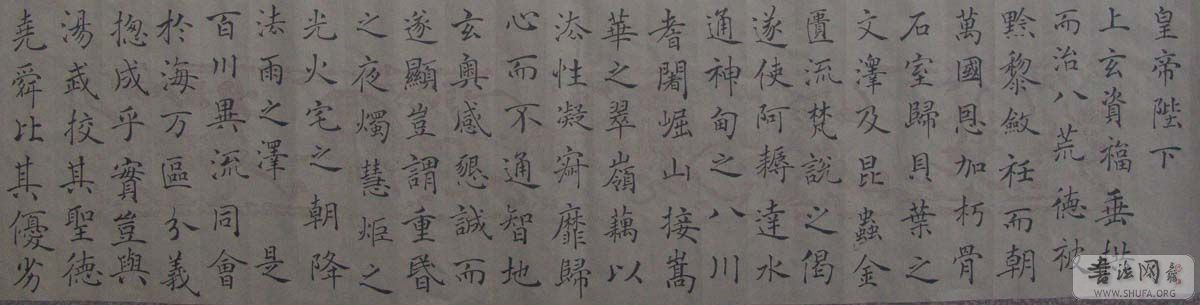 皇帝陛下
上玄資福垂拱
而治八荒德被
黔黎斂衽而朝
萬國恩加朽骨
石室歸貝葉之
文澤及昆蟲金
匱流梵說之偈
遂使阿耨達水
通神甸之八川
耆闍崛山接嵩
華之翠嶺竊以
法性凝寂靡歸
心而不通智地
玄奧感懇誠而
遂顯豈謂重昏
之夜燭慧炬之
光火宅之朝降
法雨之澤是
百川異流同會
於海万區分義
揔成乎實豈與
湯武挍其聖德
堯舜比其優劣
书法网
WWW.SHUFA.ORG